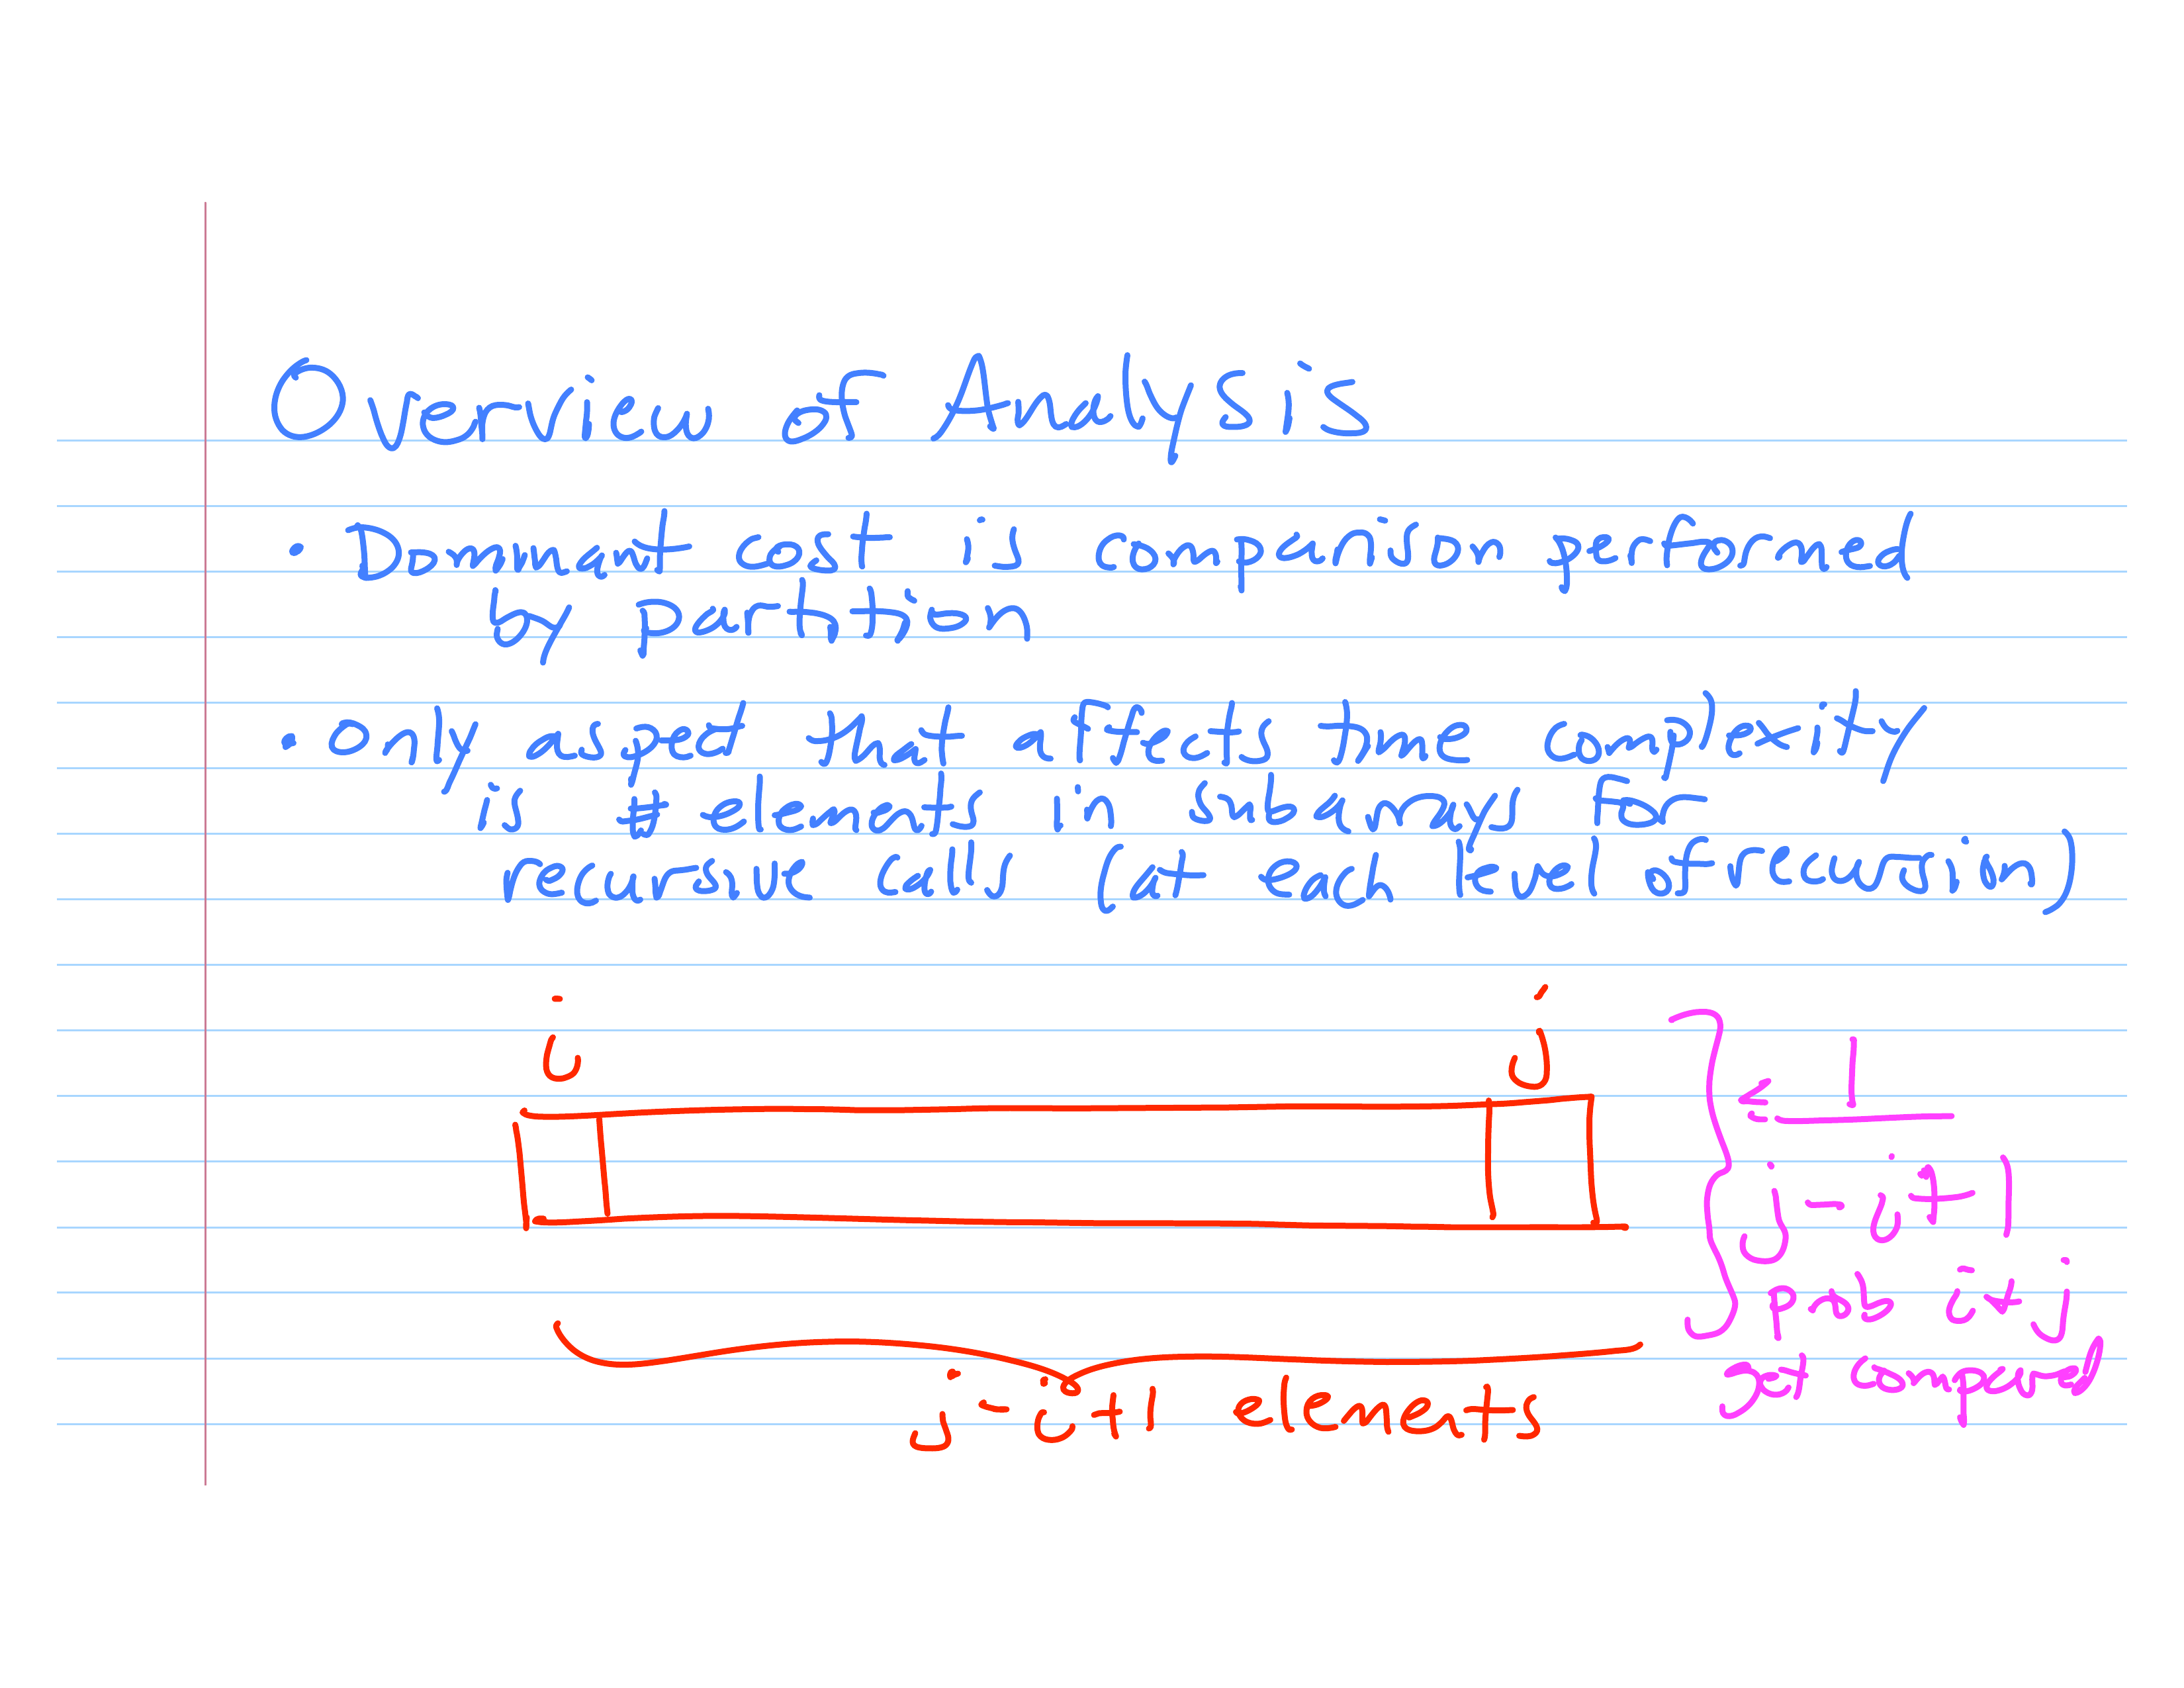 Overview of Analysis
• Dominant cost is comparison performed
by partition
• Only aspect that affects time complexity
is # elements in subarrays for
recursive call (at each level of recursion)
i
j
j-i+1 elements
≤ 1
j-i+1
prob i + j
get compared